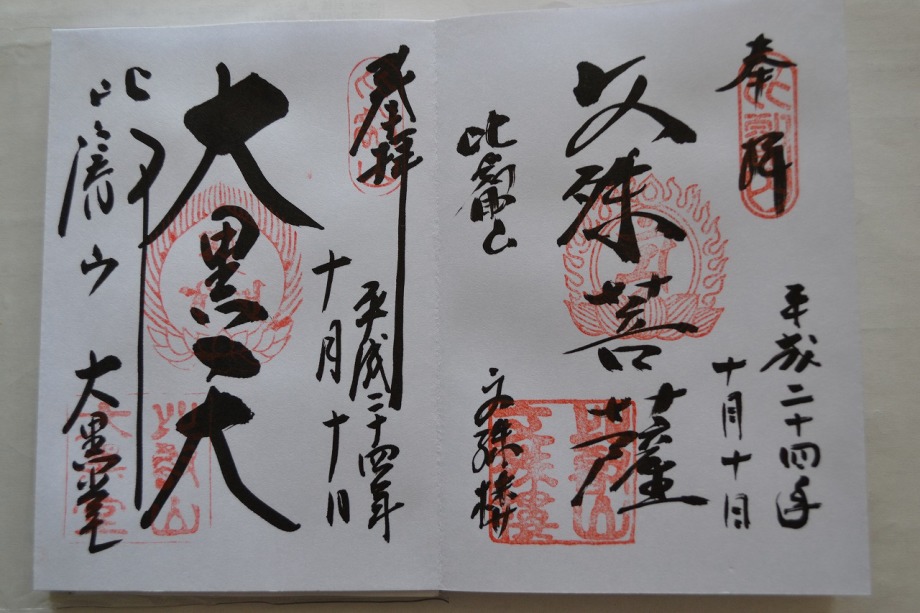 奉拝
平成二十四年
十月十日
文殊菩薩
比叡山
文殊楼
奉拝
平成二十四年
十月十日
大黒天
比叡山
大黒堂